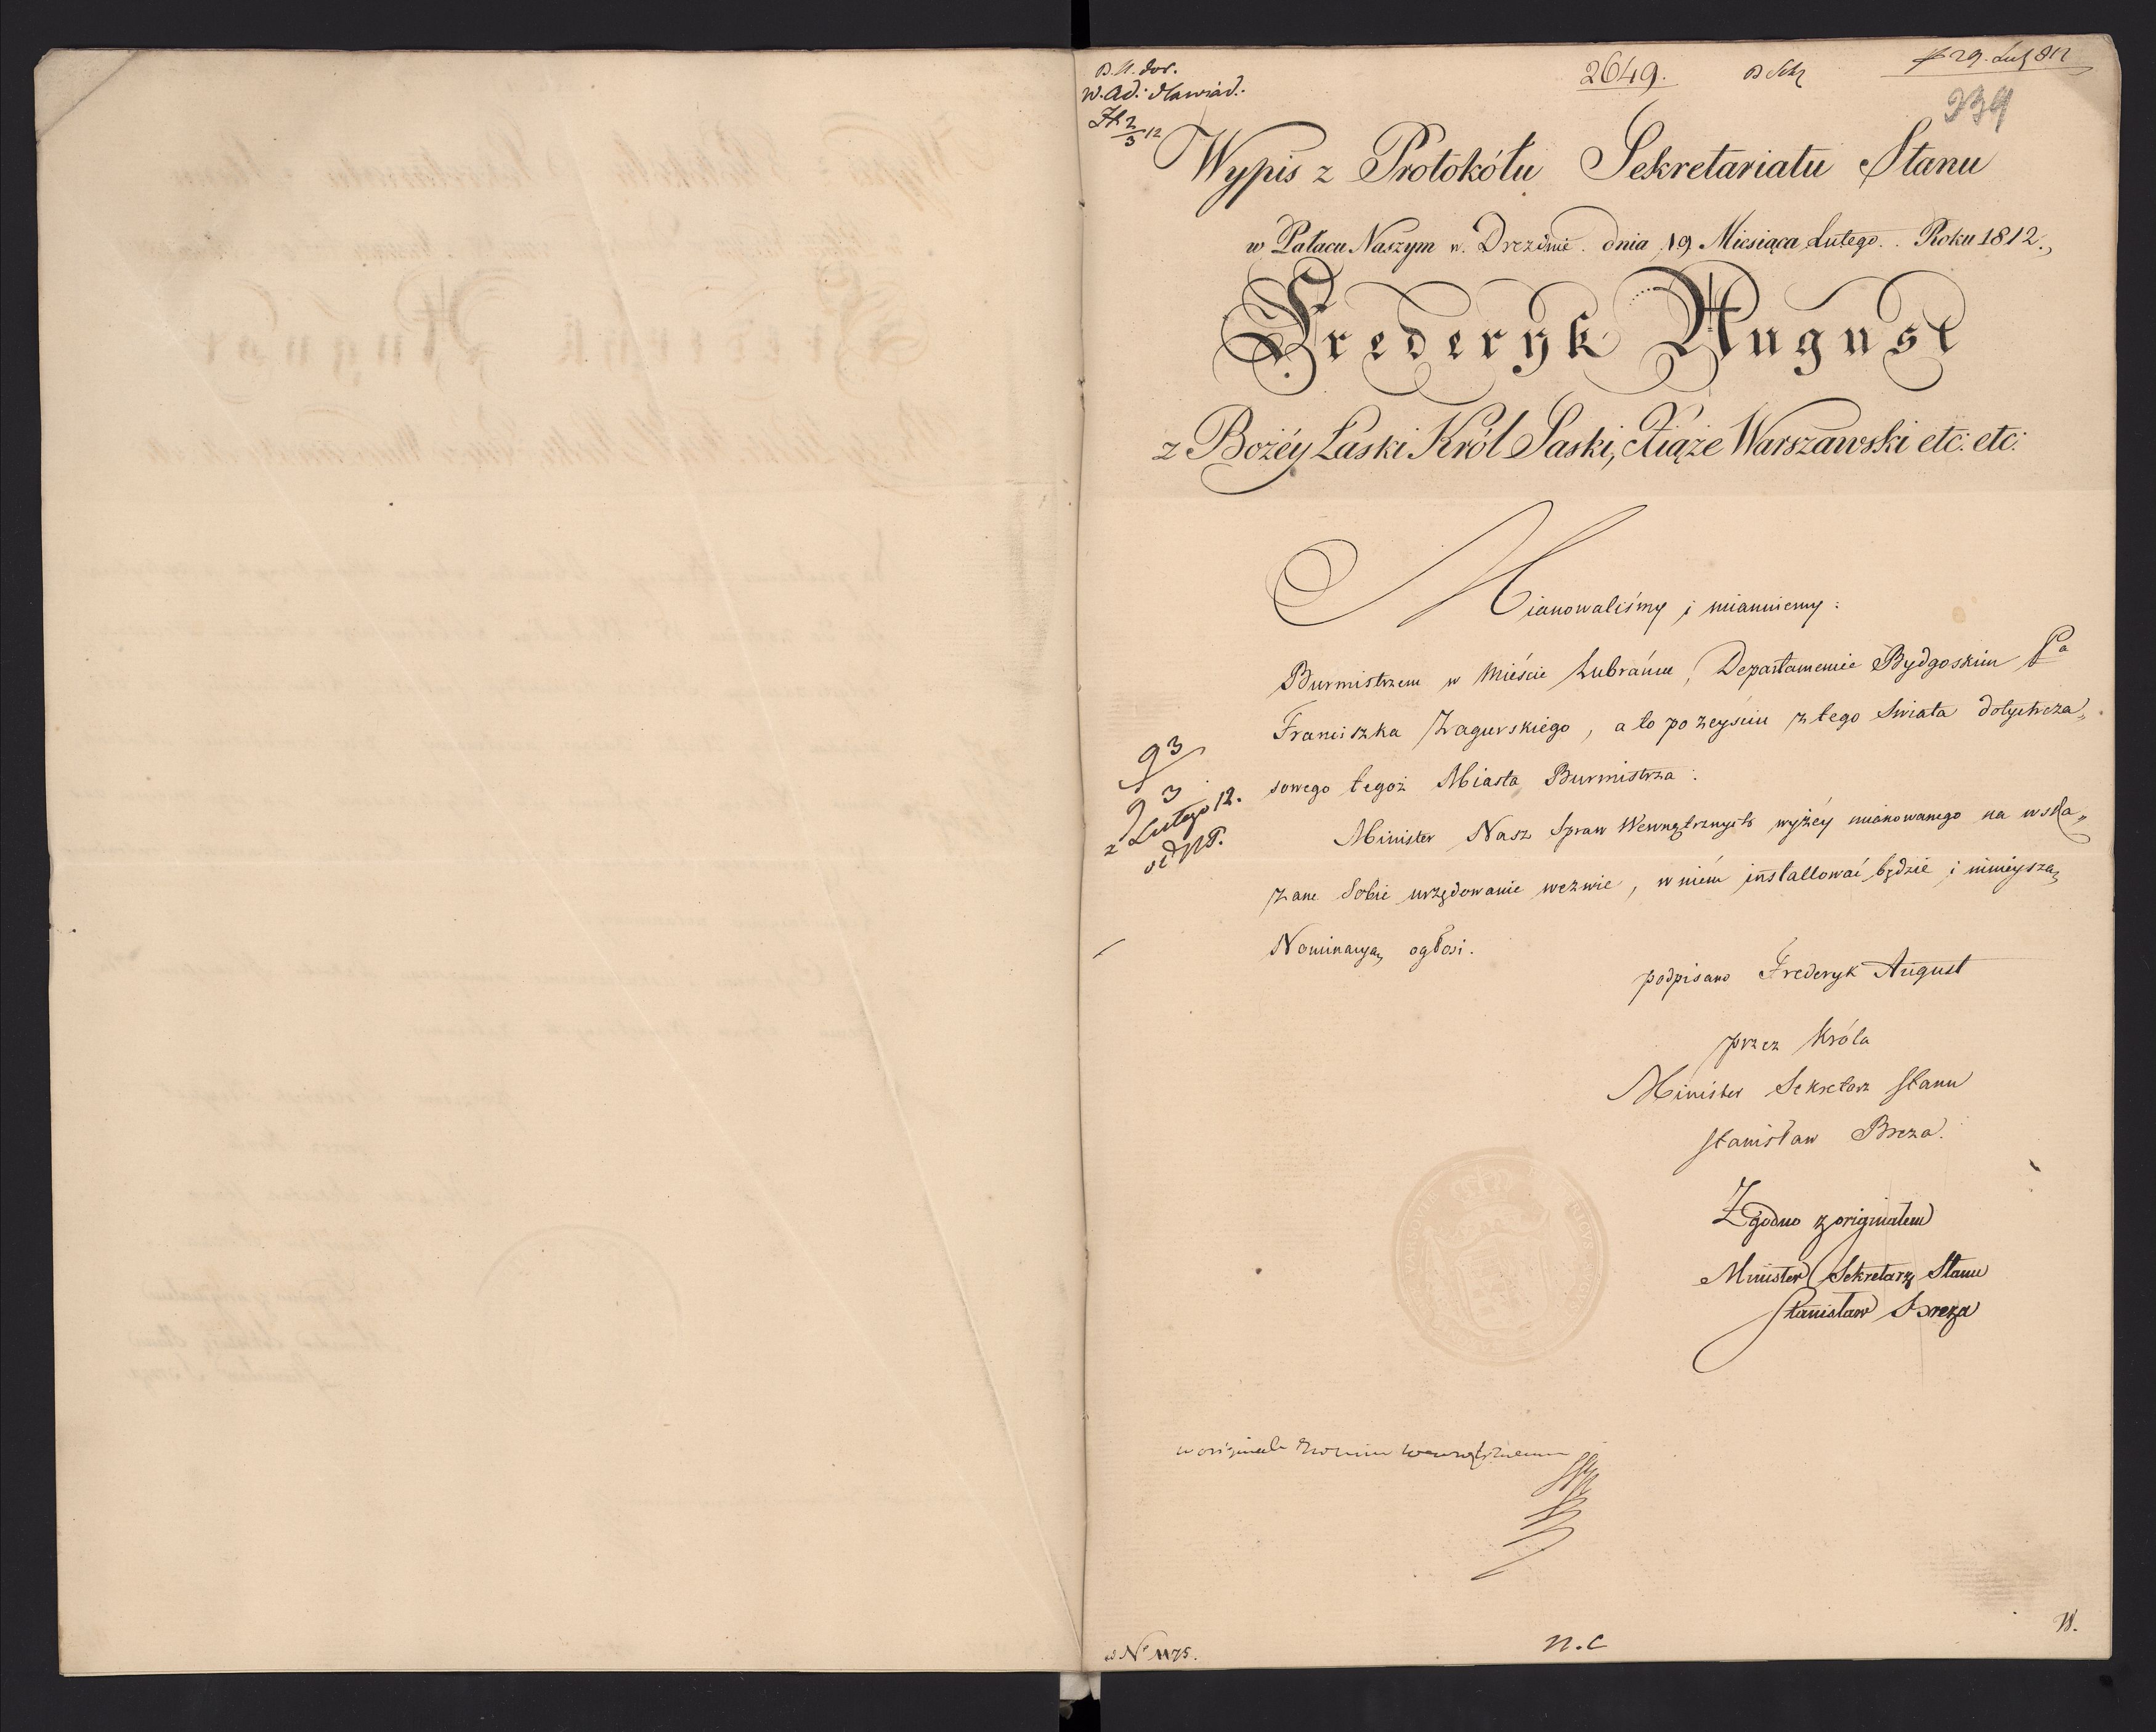 2649.
239
Wypis z Protokółu Sekretariatu Stanu
w Pałacu Naszym w Dreźnie dnia 19 Miesiąca Lutego Roku 1812.
Frederyk August
z Bożéy Łaski Król Saski, Xiąże Warszawski etc: etc:
Mianowaliśmy i mianuiemy:
Burmistrzem w Mieście Lubrańcu, Departamencie Bydgoskim Pa
Franciszka Zagurskiego, a to po zeyściu z tego Świata dotychcza„
sowego tegoż Miasta Burmistrza.
Minister Nasz Spraw Wewnętrznych wyżéy mianowanego na wska„
zane Sobie urzędowanie wezwie, w niém installować będzie i ninieyszą
Nominacyą ogłosi.
podpisano Frederyk August
przez Króla
Minister Sekretarz Stanu
Stanisław Breza.
Zgodno z originałem
Minister Sekretarz Stanu
Stanisław Breza
93
93
z Lutego 12.
N.C